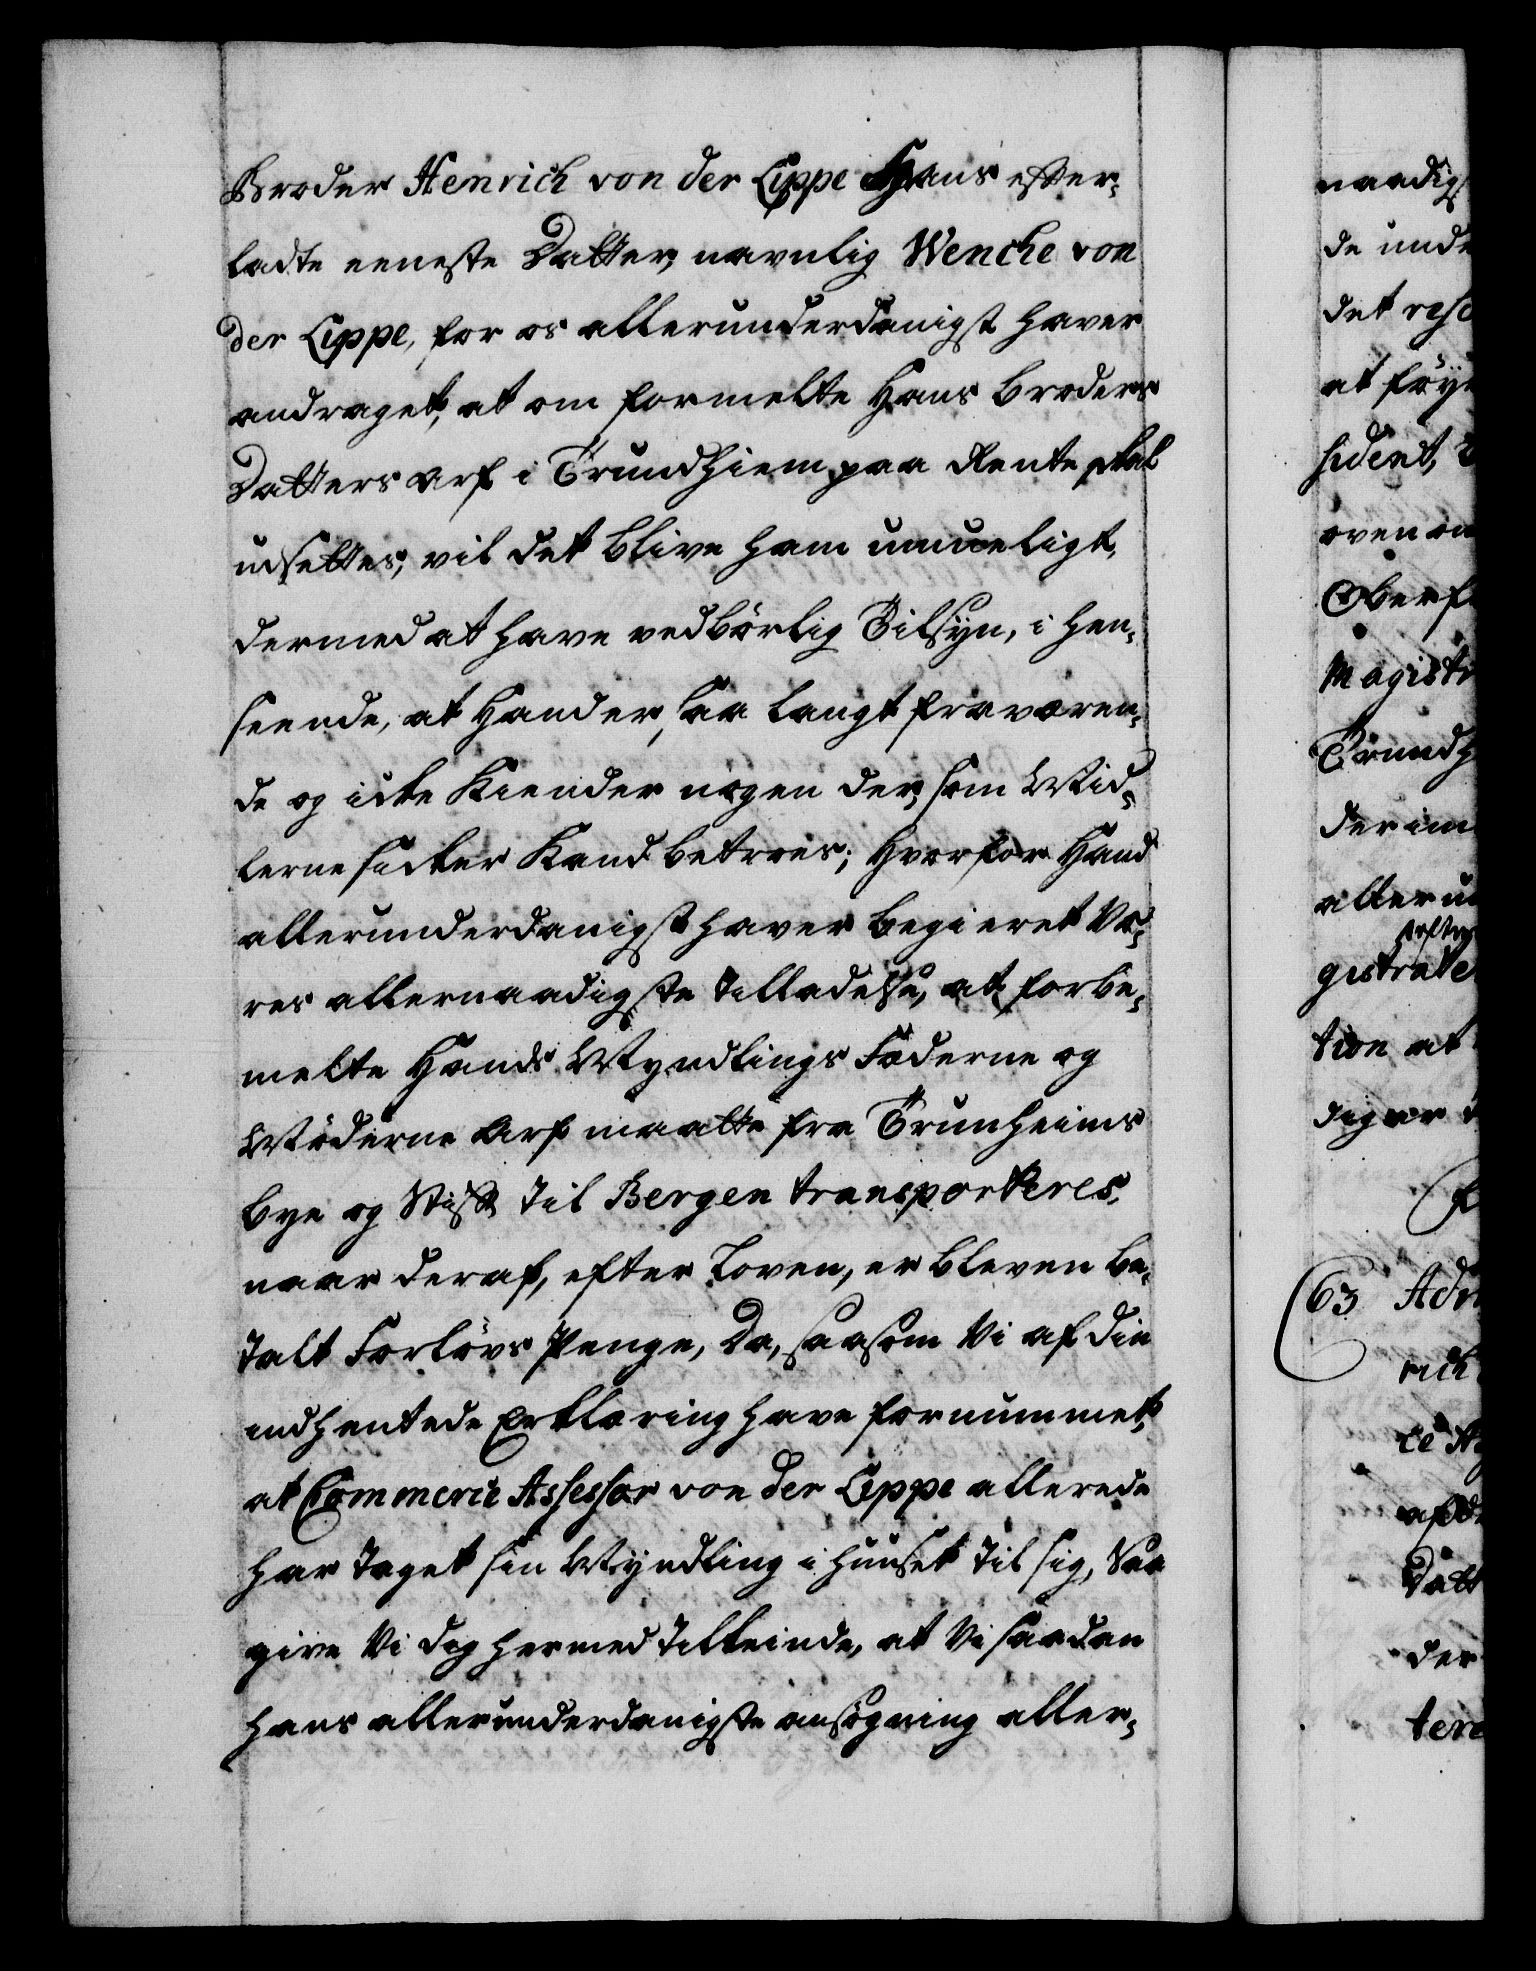 Broder Henrich von der Lippe Hans efter-
ladte eeneste Datter, navnlig Wenche von
der Lippe, for os allerunderdanigst haver
andraget, at om formelte Hans Broders
Datters Arf i Trundhiem paa Rente skal
udsettes, vil det blive ham umueligt,
dermed at have vedbørlig Tilsyn, i Hen-
seende, at Hand er saa langt fraværen-
de og icke Kiender nogen der, som Mid-
lerne sicker Kand betroes; Hvorfor Hand
allerunderdanigst haver begieret Vo-
res allernaadigste Tilladelse, at forbe-
melte Hands Myndlings Fæderne og
Møderne Arf maatte fra Trunheims
bye og Stift til Bergen transporteres,
naar deraf, efter Loven, er bleven be-
talt Forlovs Penge, Da, saasom Vi af din
indhentede Erklæring have fornummet,
at Commerce Assessor von der Lippe allerede
har taget sin Myndling i Huuset til sig, Saa
give Vi dig hermed tilkiende, at Vi saadan
hans allerunderdanigste ansøgning aller-
naadigs
de unde
det res
at føye
sident,
oven om
Oberst
Magistr
Trundh
derim
alleru
gistrate
tion at
dig er
63 Adv
rich
ce As
afd
Datt
der
tere